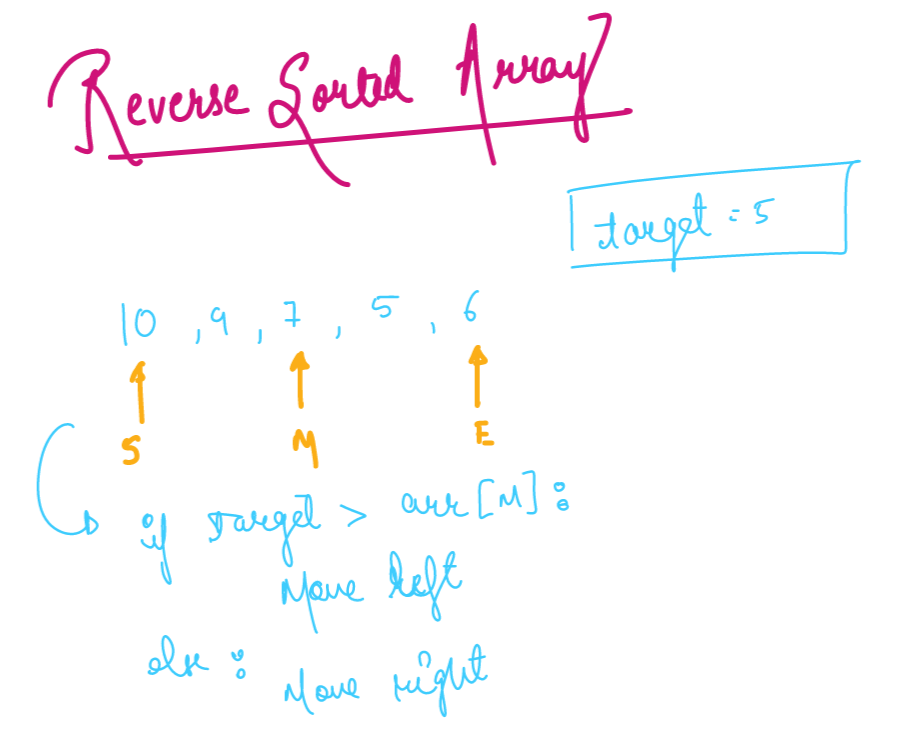 Reverse Sorted Array
target = 5
10 , 9 , 7 , 5 , 6
S M E
if target > arr[M]:
Move left
else :
Move right